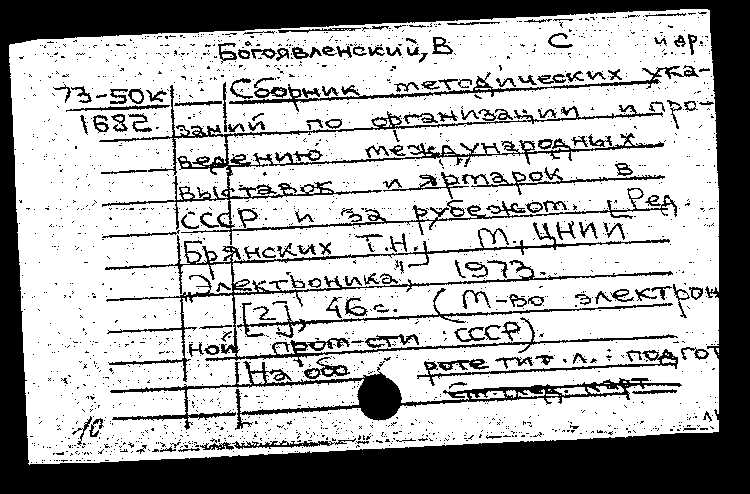 Богоявленский, В С и др.
73-50к Сборник методических ука-
1682 заний по организации и про-
ведению международных
выставок и ярмарок в
СССР и за рубежом. [Ред.
Брянских Т.Н.] М., ЦНИИ
"Электроника", 1973.
[2], 46 с. (М-во электрон
ной пром-сти СССР).
На обо роте тит. л.: подгот
См. след. карт
10